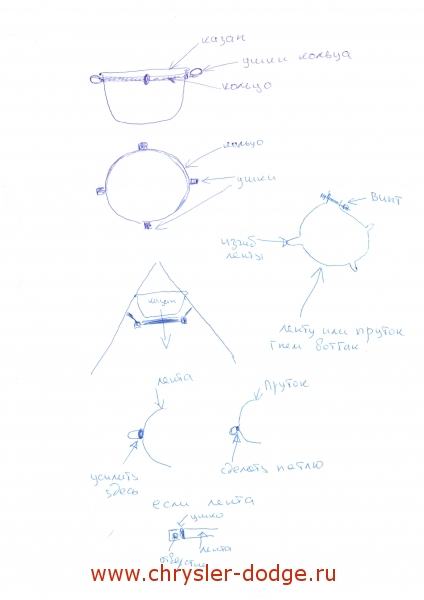 казан
ушки кольца
кольцо
кольцо
ушки
винт
изгиб
ленты
казан
ленту или пруток
гнем вот так
лента
Пруток
усилить
здесь
сделать петлю
если лента
ушко
лента
отверстие
www.chrysler-dodge.ru